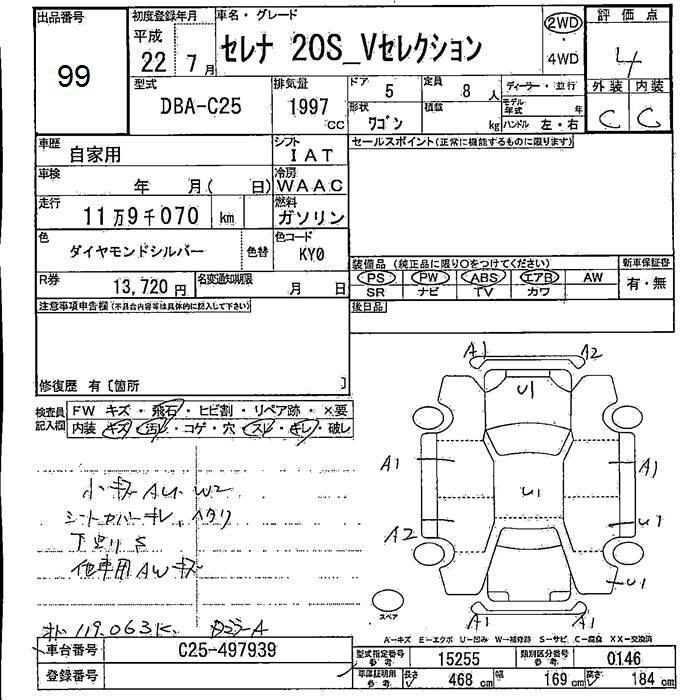 出品番号
99
初度登録年月
平成
22 7月
車名・グレード
セレナ 20S_Vセレクション
2WD
・
4WD
評価点
4
外装 内装
C C
型式
DBA-C25
排気量
1997
CC
ドア
5
定員
8 人
ディーラー・並行
形状
ワゴン
積載
kg
モデル年式 年
ハンドル 左・右
車歴
自家用
シフト
IAT
セールスポイント(正常に機能するものに限ります)
車検
年 月( 日)
冷房
WAAC
走行
11万9千070 km
燃料
ガソリン
色
ダイヤモンドシルバー
色替
色コード
KY0
装備品 (純正品に限り○をつけてください)
新車保証書
PS PW ABS エアB AW
有・無
SR ナビ TV カワ
R券
13,720 円
名変通知期限
月 日
後日品
注意事項申告欄(不具合内容等は具体的に記入して下さい)
修復歴 有〔箇所 〕
検査員記入欄
FW キズ・飛石・ヒビ割・リペア跡・×要
内装 キズ・汚レ・コゲ・穴・スレ・キレ・破レ
小キズ AU W2
シートカバーキレ、ヘタリ
下廻り S
他車用AWキズ
119.063K
A1 A2
U1
A1 A1
U1
A2 U1
U1
スペア
A-キズ E-エクボ U-凹み W-補修跡 S-サビ C-腐食 XX-交換済
車台番号
C25-497939
登録番号
型式指定番号
参考
15255
類別区分番号
参考
0146
車庫証明用
参考
長さ 468 cm 幅 169 cm 高さ 184 cm